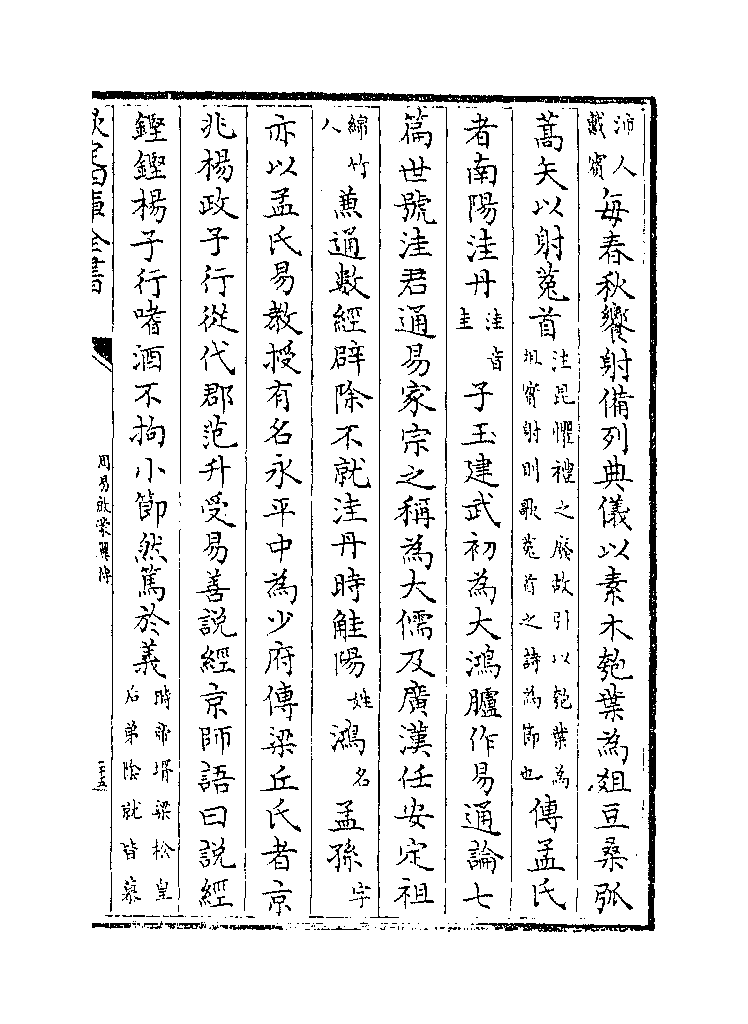 沛人戴賓每春秋饗射備列典儀以素木匏葉為俎豆桑弧
蒿矢以射菟首注昆懼禮之廢故引以匏葉為俎實射則歌菟首之詩為節也傳孟氏
者南陽洼丹洼音圭子玉建武初為大鴻臚作易通論七
篇世號洼君通易家宗之稱為大儒及廣漢任安定祖
綿竹人兼通數經辟除不就洼丹時觟陽姓鴻名孟孫字
亦以孟氏易教授有名永平中為少府傳梁丘氏者京
兆楊政子行從代郡范升受易善説經京師語曰説經
鏗鏗楊子行嗜酒不拘小節然篤於義時帝壻梁松皇后弟陰就皆慕
欽定四庫全書
周易啟蒙翼傳
二十五